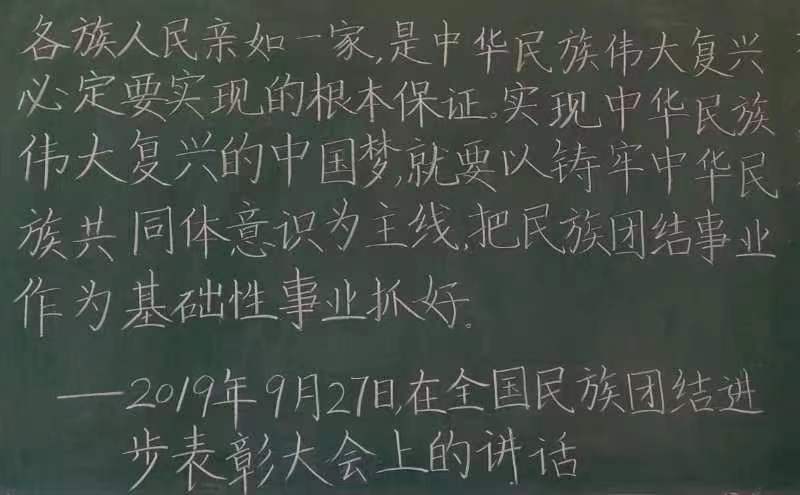 各族人民亲如一家,是中华民族伟大复兴
必定要实现的根本保证。实现中华民族
伟大复兴的中国梦,就要以铸牢中华民
族共同体意识为主线,把民族团结事业
作为基础性事业抓好。
——2019年9月27日,在全国民族团结进
步表彰大会上的讲话